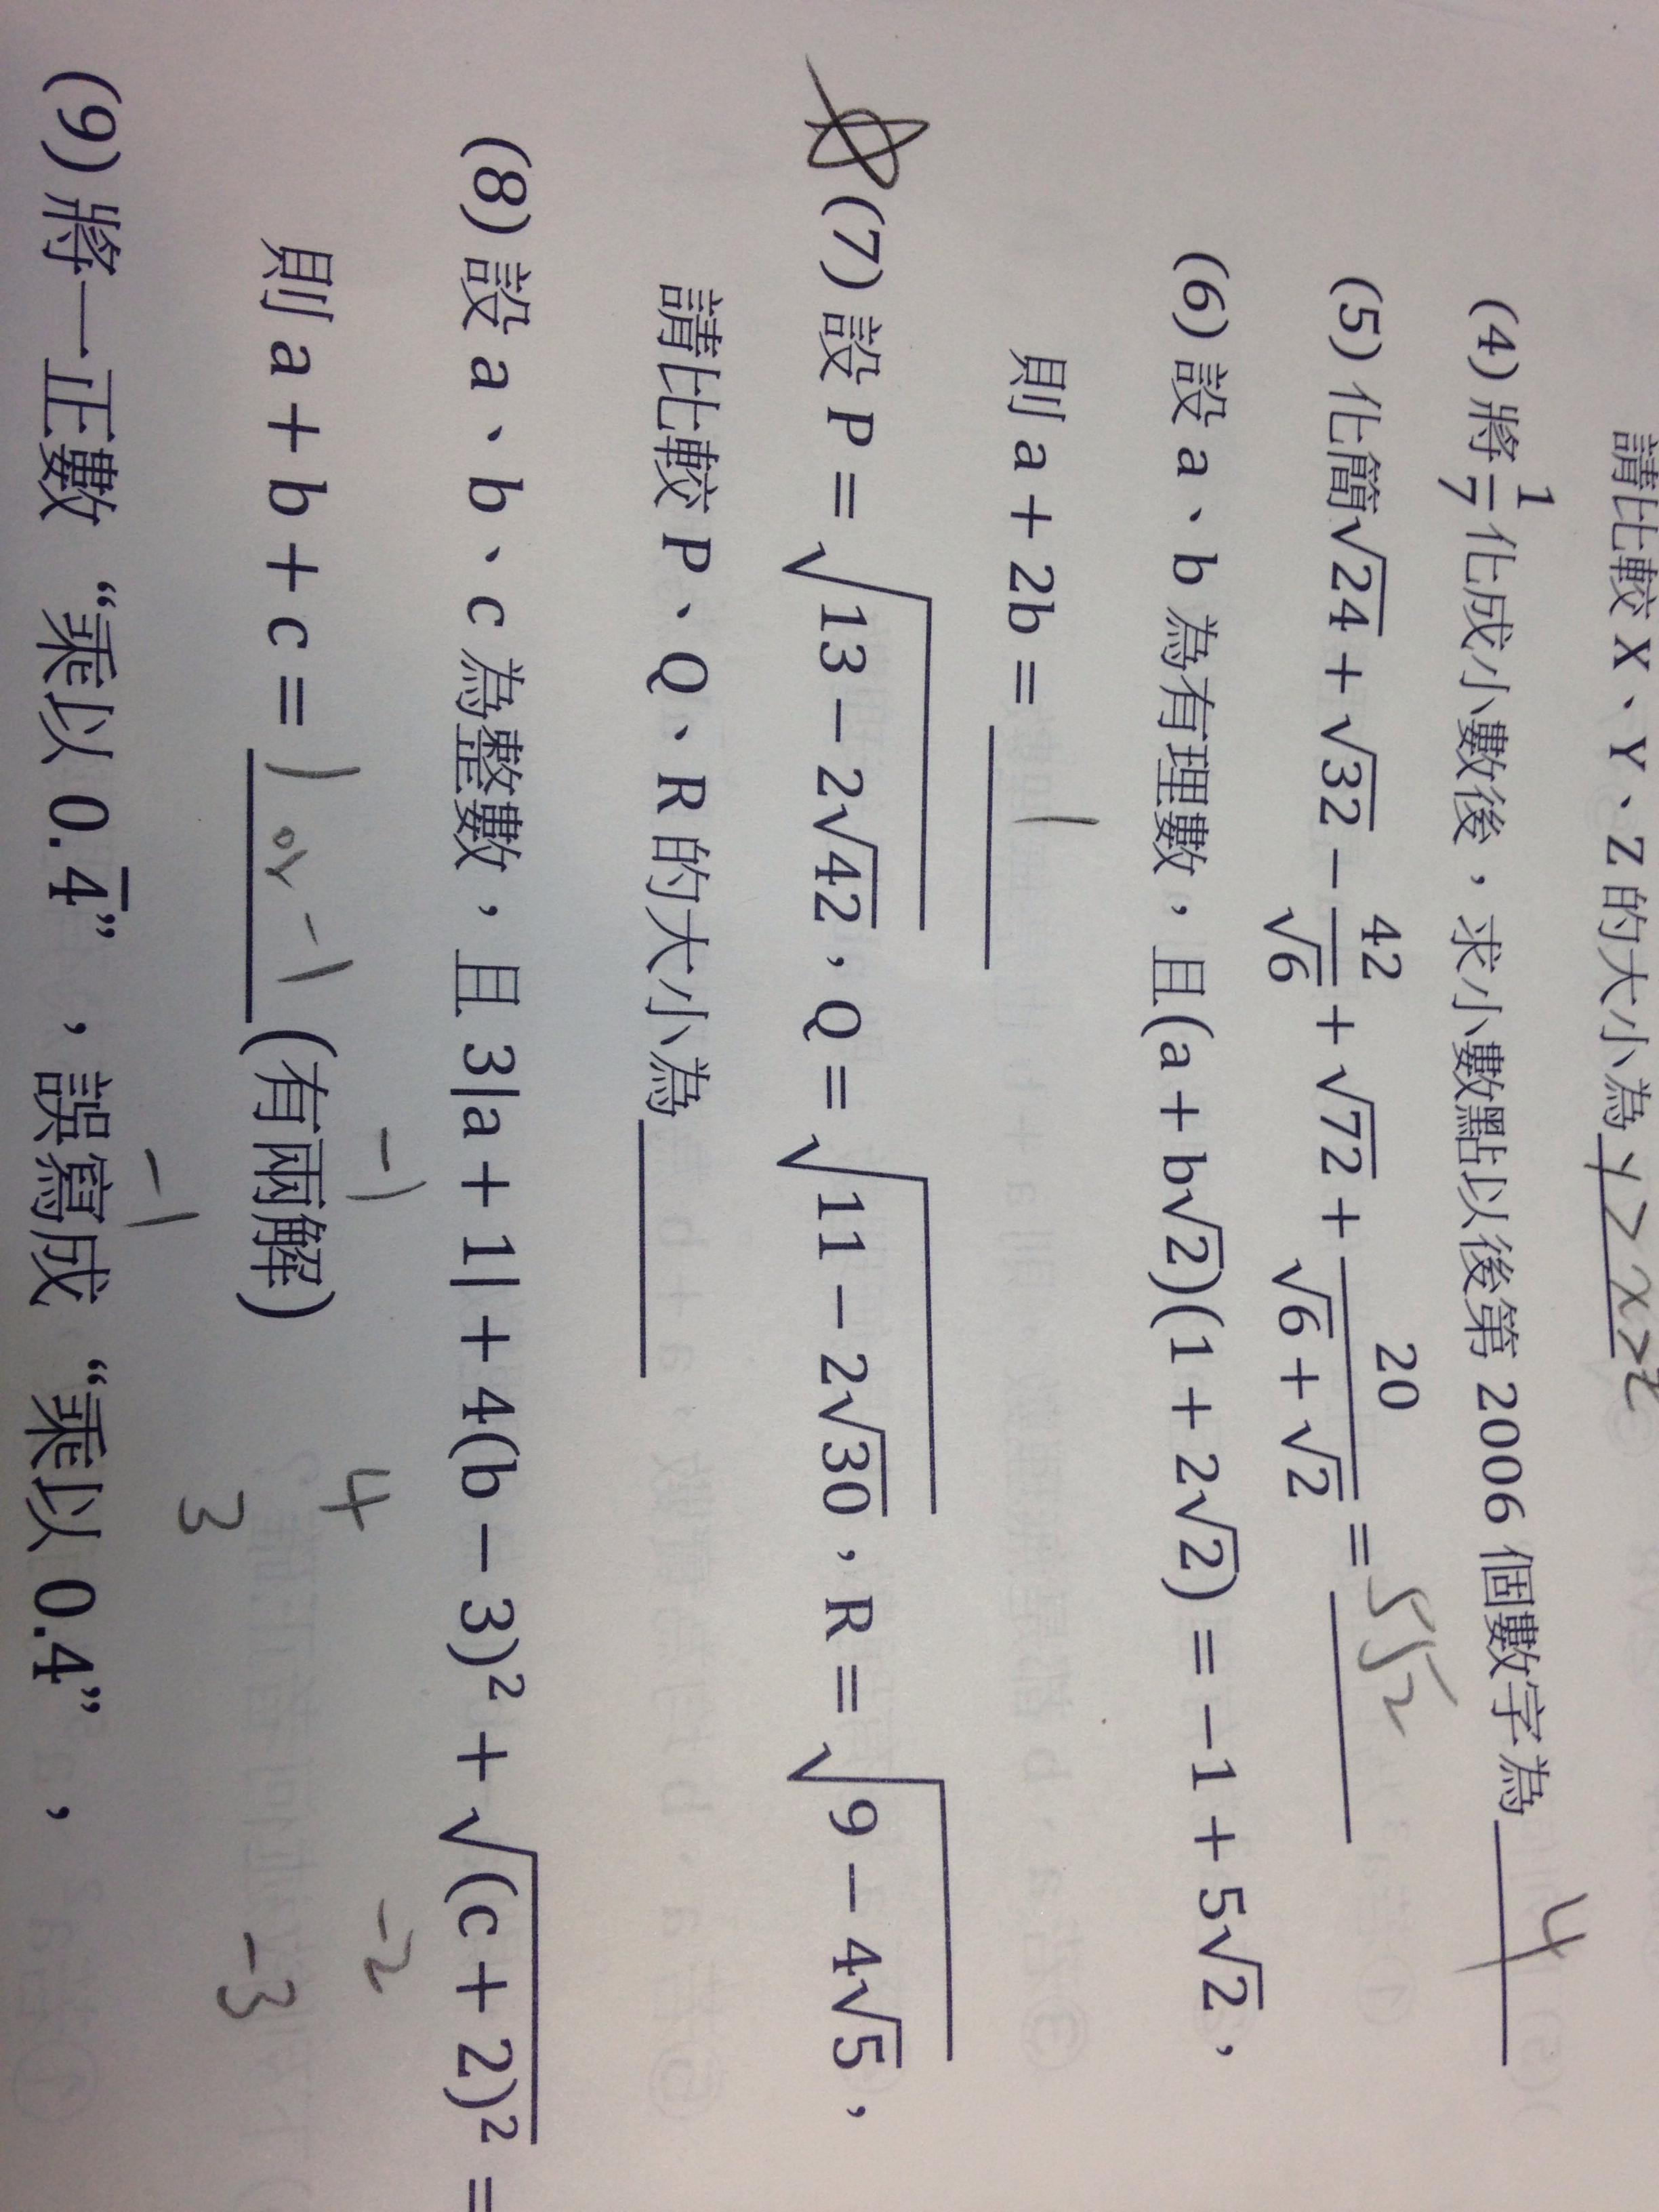 請比較 X、Y、Z 的大小為 Y>x>z
(4) 將 1/7 化成小數後，求小數點以後第 2006 個數字為 4
(5) 化簡√24 + √32 − 42/√6 + √72 + 20/(√6 + √2) = 5√2
(6) 設 a、b 為有理數，且(a + b√2)(1 + 2√2) = −1 + 5√2，
則 a + 2b = 1
(7) 設 P = √(13 − 2√42)，Q = √(11 − 2√30)，R = √(9 − 4√5)，
請比較 P、Q、R 的大小為
(8) 設 a、b、c 為整數，且 3|a + 1| + 4(b − 3)² + √((c + 2)²) =
-1 4 -2
則 a + b + c = 1 or -1 (有兩解)
-1 3 -3
(9) 將一正數 “乘以 0.4̅”，誤寫成 “乘以 0.4”，